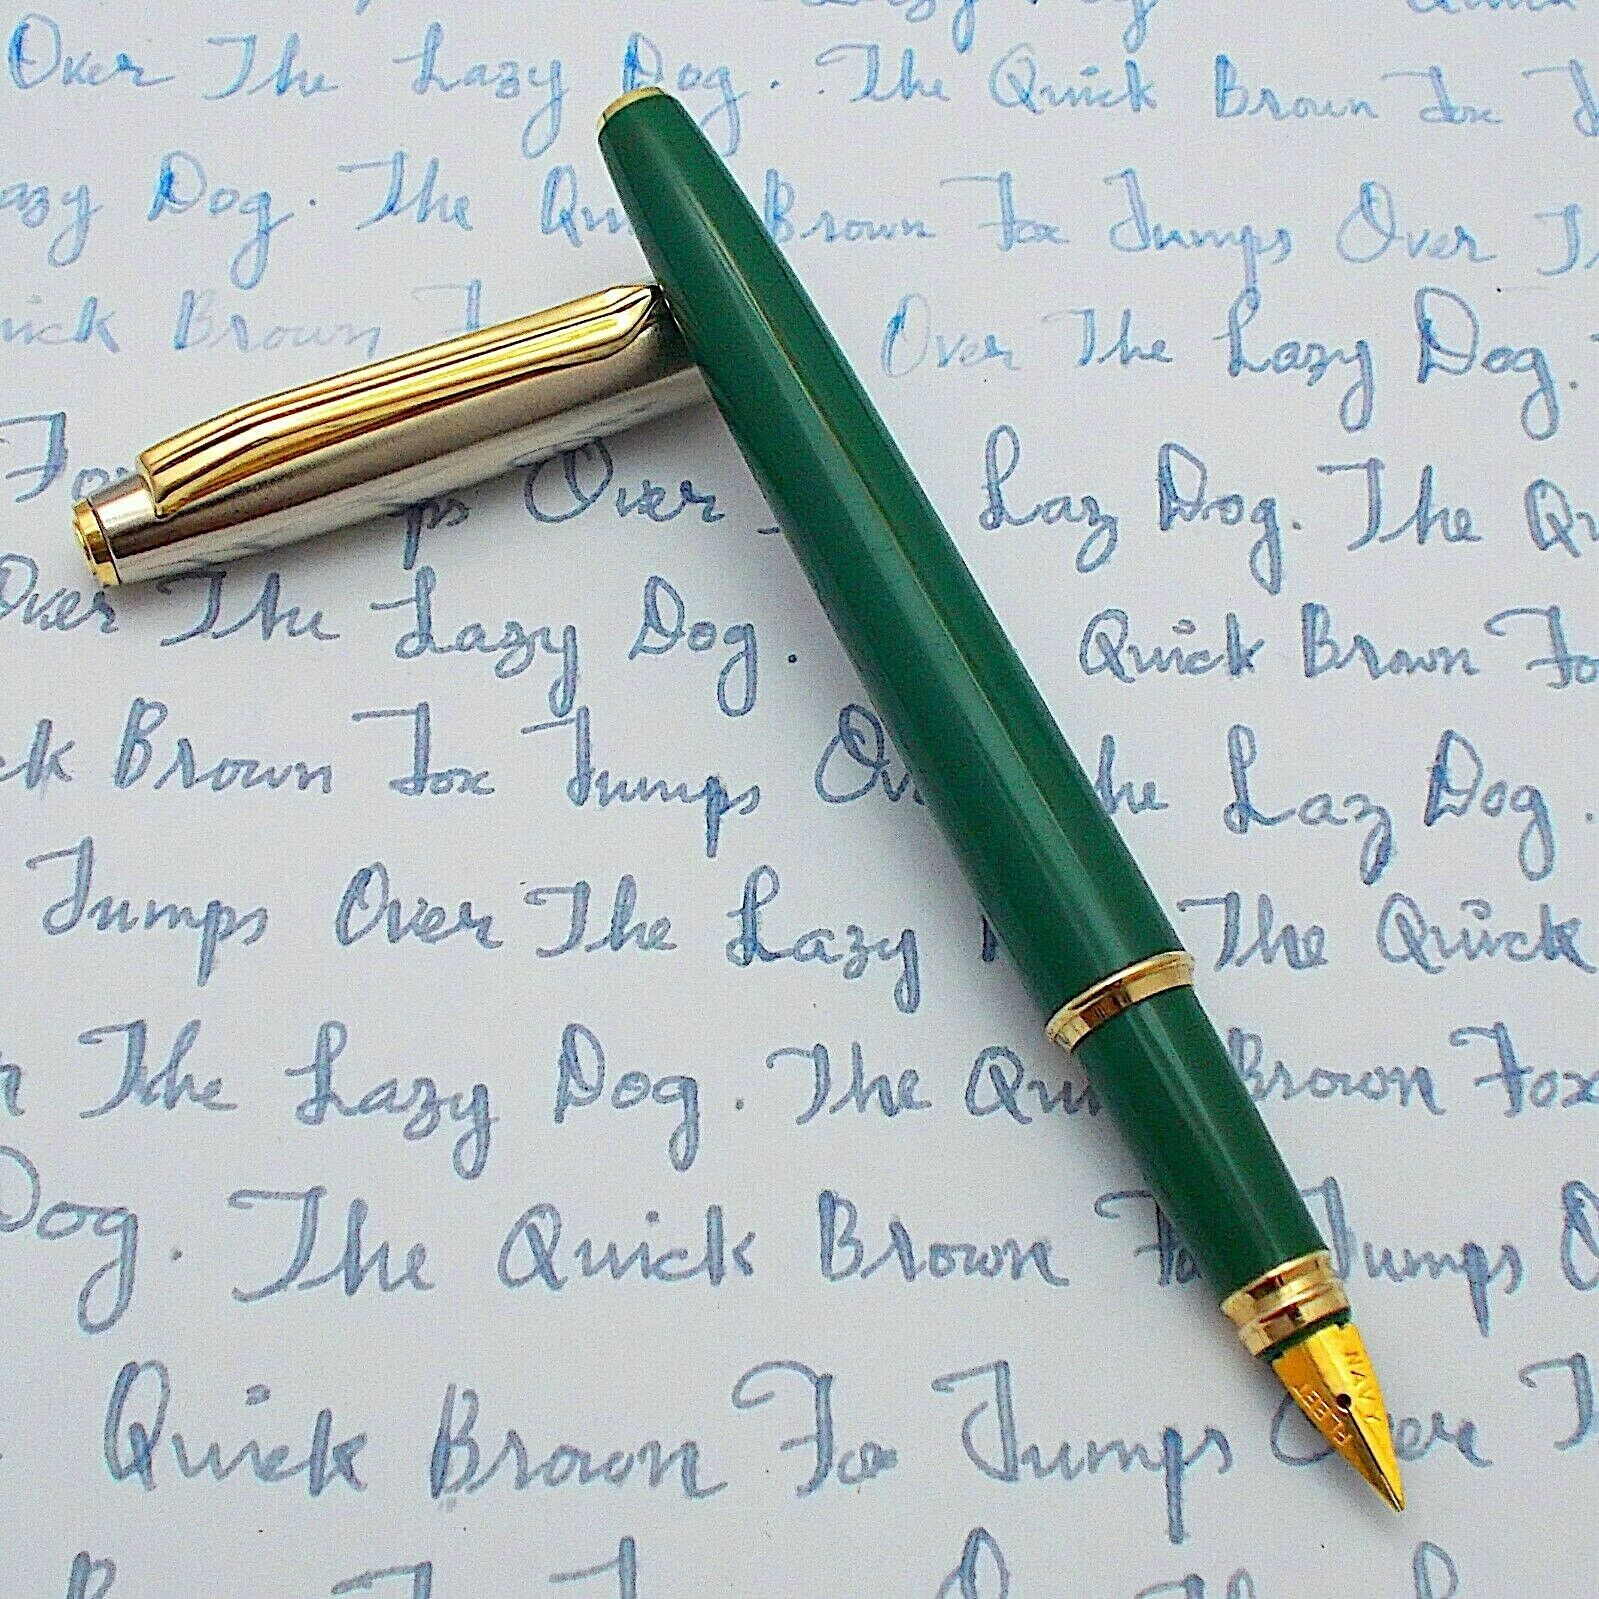 Over The Lazy Dog. The Quick Brown Fox
azy Dog. The Brown Fox Jumps Over
ick Brown Over The Lazy Dog.
Fox ps Over Laz Dog. The Qu
Over The Lazy Dog. Quick Brown Fo
ck Brown Fox Jumps Ov he Laz Dog.
Jumps Over The Lazy The Quick
The Lazy Dog. The Qui Brown Fox
Dog. The Quick Brown Fo Jumps O
Quick Brown Fox Jumps Over T
NAVY
FLEET